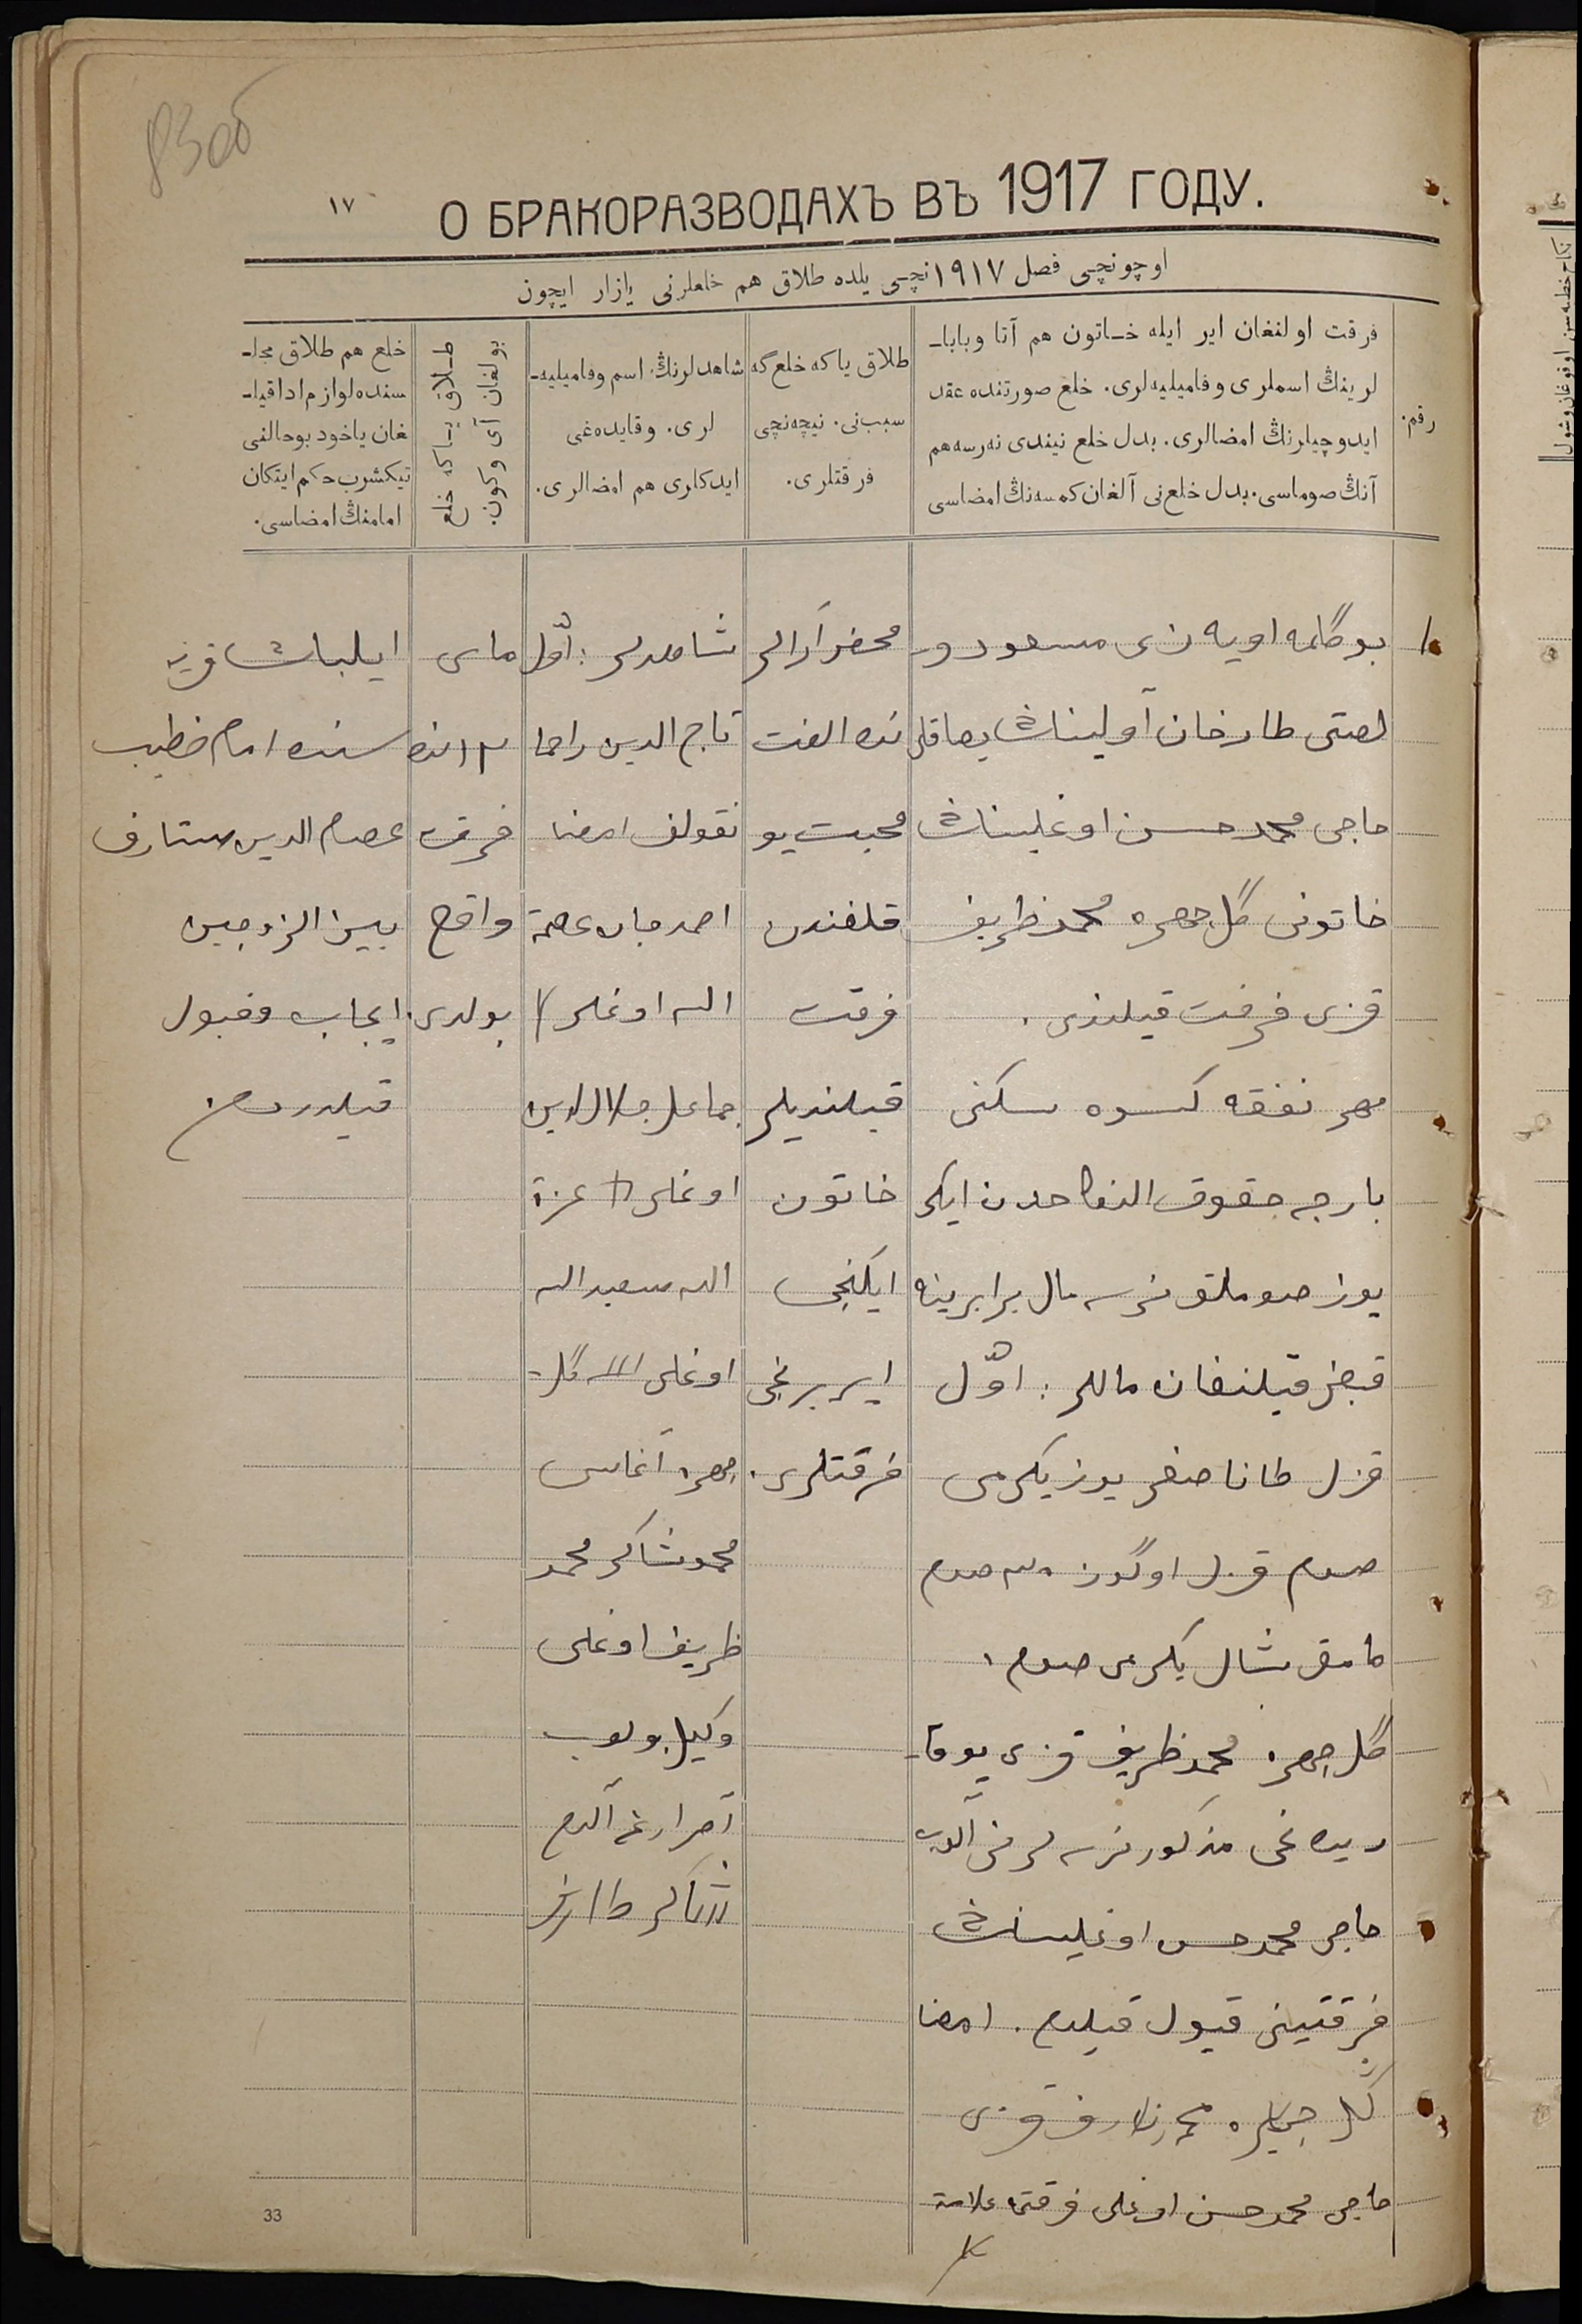 83 об
١٧
О БРАКОРАЗВОДАХЪ ВЪ 1917 ГОДУ.
اوچونچی فصل ١٩١٧نچی یلده طلاق هم خلعلرنی یازار ایچون
رقم.
فرقت اولنغان ایر ایله خاتون هم آتا وبابا-
لرینڭ اسملری وفامیلیه‌لری. خلع صورتنده عقد
ایدوچیلرنڭ امضالری. بدل خلع نیندی نه‌رسه هم
آنڭ صوماسی. بدل خلع‌نی آلغان کمسه‌نڭ امضاسی
طلاق یاکه خلع‌گه
سبب‌نی. نیچه‌نچی
فرقتلری.
شاهدلرنڭ اسم وفامیلیه-
لری. وقایده‌غی
ایدکلری هم امضالری.
طلاق یاکه خلع
بولغان آی وکون.
خلع هم طلاق مجل-
سنده لوازم ادا قیلـ
ـغان یاخود بوحالنی
تیکشرب حکم ایتکان
امامنڭ امضاسی.
١
بوگلمه اویه زی مسعود و-
لصتی طارخان آولیناڭ
حاجی محمدحسن اوغلیناڭ
خاتونی گل جهره محمدظریف
قزی فرقت قیلندی.
مهر نفقه کسوه سکنی
بارچه حقوق النکاحدن ایکی
یوز صوملق نرسه مال برابرینه
قبض قیلنغان ماللر: اوّل
قزل طانا صغر یوز یکرمی
صوم قزل اوگوز ٣٠ صوم
مامق شال یکرمی صوم.
گل جهره محمدظریف قزی یوقا-
ریده‌غی مذکور نرسه‌لرنی آلوب
حاجی محمدحسن اوغلیناڭ
فرقتینی قبول قیلدم. امضا
گل جهره محمدظریف قزی
حاجی محمدحسن اوغلی فرقتی علامة
محضر آرالر
نده الفت
محبت یو
قلغندن
فرقت
قیلندیلر
خاتون
ایکنجی
ایر برنجی
فرقتلری.
شاهدلر: اوّل
تاج الدین راحما
نقولف امضا
احمدجان عصمة
الله اوغلی
جماعل جلال‌الدین
اوغلی عزة
الله سعیدالله
اوغلی گل-
جهره آغاسی
محمدشاکر محمد
ظریف اوغلی
وکیل بولوب
آدم
شاکر طاارف
مای
١٣ نده
فرقت
واقع
بولدی.
ایلباش قریه
سنده امام خطیب
عصام الدین ستارف
بین الزوجین
ایجاب وقبول
قیلدردم
33